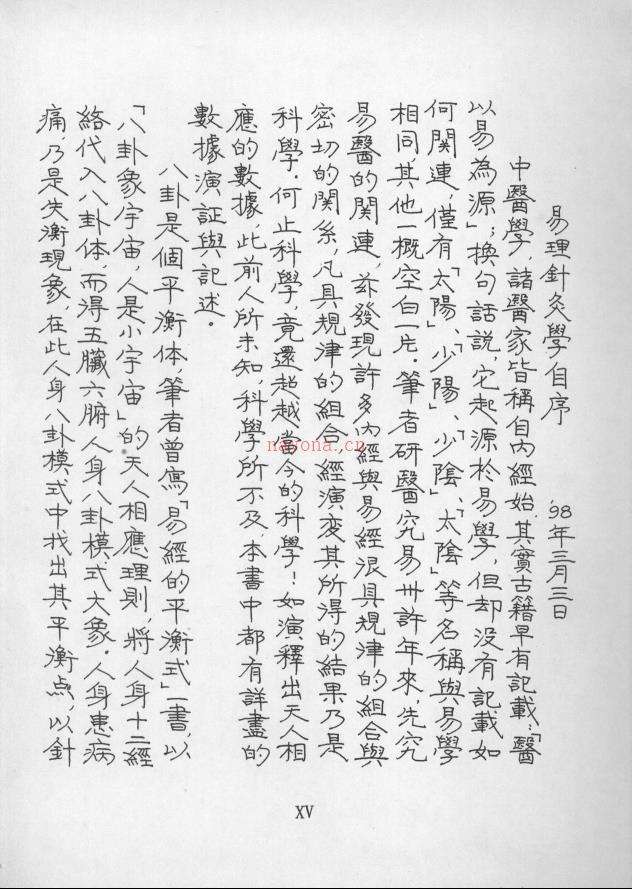 易理針灸學自序
'98年三月三日
中醫學，諸醫家皆稱自內經始，其實古籍早有記載：「醫
以易為源」；換句話說，它起源於易學，但却沒有記載如
何關連，僅有「太陽」、「少陽」、「少陰」、「太陰」等名稱與易學
相同，其他一概空白一片。筆者研醫究易卅許年來，洗究
易醫的關連，茲發現許多內經與易經很具規律的組合與
密切的關系，凡具規律的組合，經演变其所得的結果乃是
科學。何止科學，竟還超越當今的科學！如演釋出天人相
應的數據，此前人所未知，科學所不及，本書中都有詳盡的
數據演証與記述。
八卦是個平衡体，筆者曾寫「易經的平衡式」一書，以
「八卦象宇宙，人是小宇宙」的天人相應理則，將人身十二經
絡代入八卦体，而得五臟六腑人身八卦模式大象。人身患病
痛乃是失衡現象，在此人身八卦模式中找出其平衡点，以針
nayona.cn
XV